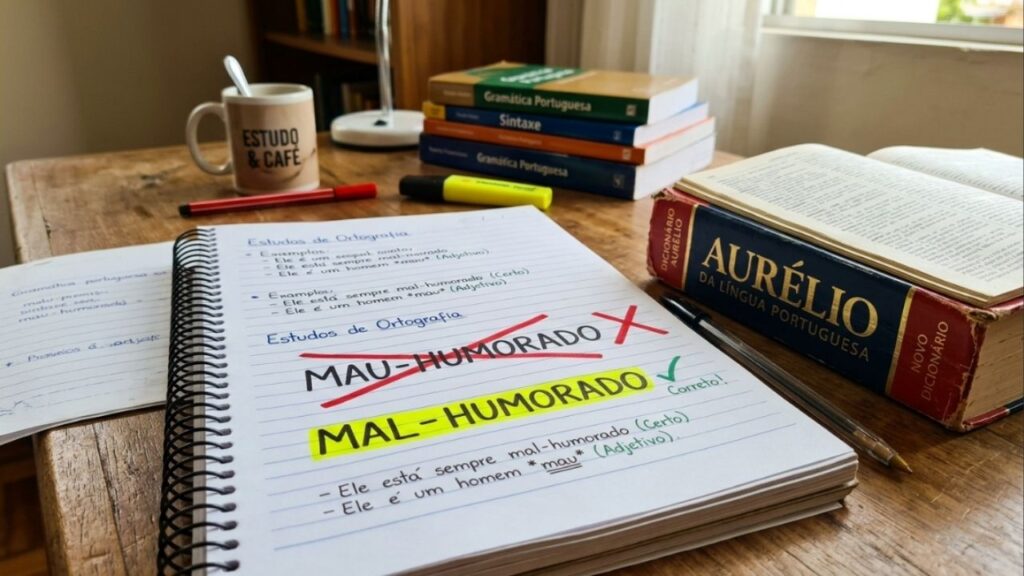 ESTUDO
& CAFÉ
Gramática Portuguesa
Sintaxe
Gramática Portuguesa
DICIONÁRIO
AURÉLIO
AURÉLIO
DA LÍNGUA PORTUGUESA
NOVO
DICIONÁRIO
Gramática portuguesa
mau-humorado
Estudos de Ortografia
- Ele é um
- Ele está sempre mal-humorado (Adjetivo)
- Ele é um homem *mau* (Adjetivo)
• Examplos,
- Ele está sempre mal-humorado (Certo)
- Ele é um homem *mau* (Adjetivo)
Estudos de Ortografia
MAU-HUMORADO X
MAL-HUMORADO ✓
Correto!
- Ele está sempre mal-humorado (Certo)
- Ele é um homem *mau* (Adjetivo)